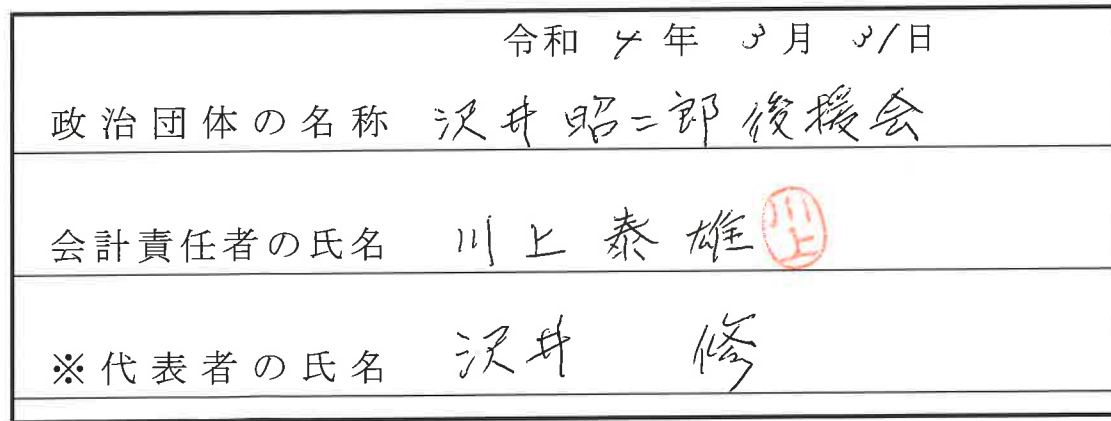 令和 4 年 3 月 31日
政治団体の名称 沢井昭二郎後援会
会計責任者の氏名 川上泰雄 川上
※代表者の氏名 沢井 修